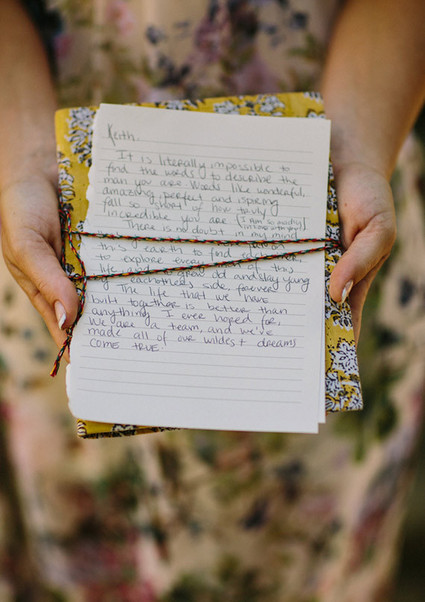 Keith,
It is literally impossible to
find the words to describe the
man you are. Words like wonderful,
amazing, perfect and inspiring
fall so short of how truly
incredible you are (I am so madly
in love with you)
There is no doubt in my mind
this earth to find
to explore every of this
life with grow old and stay young
by eachothers side, forever
The life that we have
built together is better than
anything I ever hoped for,
We are a team, and we've
made all of our wildest dreams
COME TRUE.